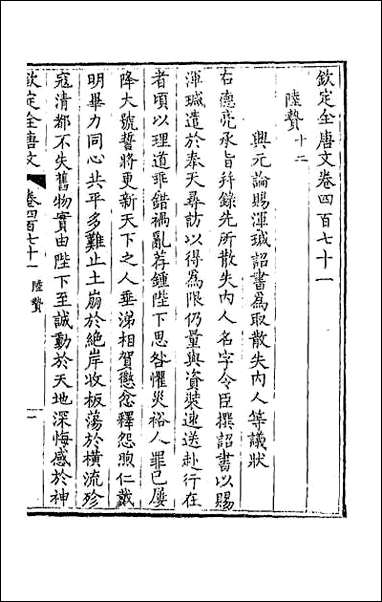 欽定全唐文卷四百七十一
陸贄十二
興元論賜渾瑊詔書為取散失內人等議狀
右德亮承旨并錄先所散失內人名字令臣撰詔書以賜
渾瑊遣於奉天尋訪以得為限仍量與資裝速送赴行在
者頃以理道乖錯禍亂荐鍾陛下思咎懼災裕人罪已屢
降大號誓將更新天下之人垂涕相賀懲忿釋怨煦仁戴
明畢力同心共平多難止土崩於絕岸收板蕩於橫流殄
寇清都不失舊物實由陛下至誠動於天地深悔感於神
欽定全唐文 卷四百七十一 陸贄 一